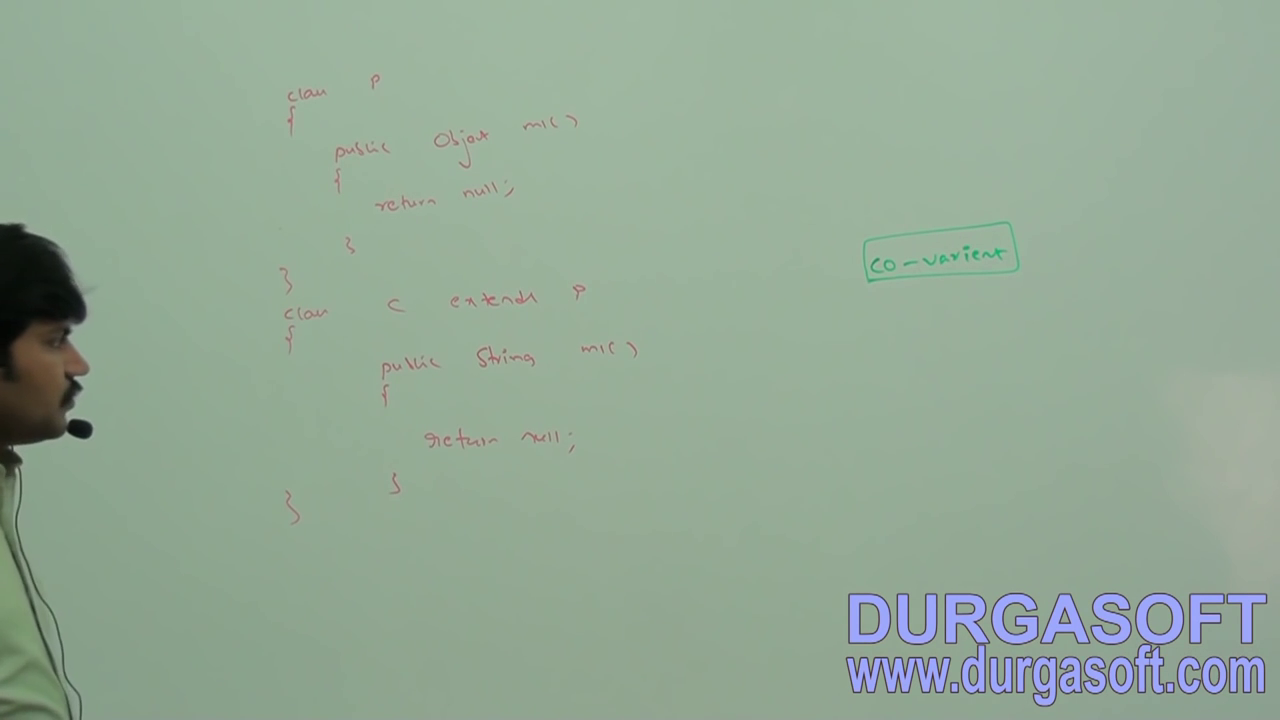 class P
{
public Object m1()
{
return null;
}
}
class C extends P
{
public String m1()
{
return null;
}
}
co-varient
DURGASOFT
www.durgasoft.com